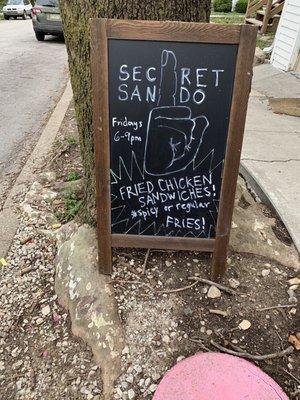 SECRET
SANDO
Fridays
6-9pm
FRIED CHICKEN
SANDWICHES!
*spicy or regular
FRIES!